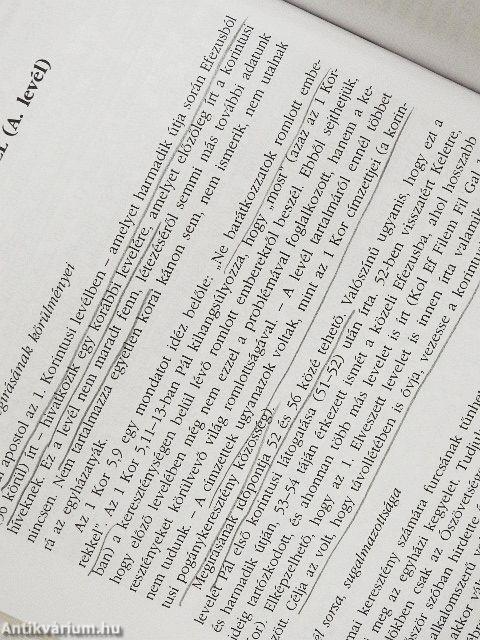 (A. levél)
megírásának körülményei
apostol az 1. Korintusi levélben – amelyet harmadik útja során Efezusból
körül) írt – hivatkozik egy korábbi levelére, amelyet előzőleg írt a korintusi
híveknek. Ez a levél nem maradt fenn, létezéséről semmi más további adatunk
nincsen. Nem tartalmazza egyetlen korai kánon sem, nem ismerik, nem utalnak
rá az egyházatyák.
Az 1 Kor 5,9 egy mondatot idéz belőle: „Ne barátkozzatok romlott embe-
rekkel". Az 1 Kor 5,11–13-ban Pál kihangsúlyozza, hogy „most" (azaz az 1 Kor-
ban) a kereszténységen belül lévő romlott emberekről beszél. Ebből sejthetjük,
hogy előző levelében még nem ezzel a problémával foglalkozott, hanem a ke-
resztényeket körülvevő világ romlottságával. – A levél tartalmáról ennél többet
nem tudunk. – A címzettek ugyanazok voltak, mint az 1 Kor címzettjei (a korin-
tusi pogánykeresztény közösség).
Megírásának időpontja 52 és 56 közé tehető. Valószínű ugyanis, hogy ezt a
levelet Pál első korintusi látogatása (51–52) után írta. 52-ben visszatért Keletre,
és harmadik útján, 53-54 táján érkezett ismét a közeli Efezusba, ahol hosszabb
ideig tartózkodott, és ahonnan több más levelet is írt (Kol Ef Filem Fil Gal 1
Kor). Elképzelhető, hogy az 1. Elveszett levelet is innen írta valamik
Célja az volt, hogy távollétében is óvja, vezesse a korintusi
sorsa, sugalmazottsága
mai keresztény számára furcsának tűnhet
meg az egyházi kegyelet. Tudju
csak az Ószövetség
szóban hirdette
Antikvárium.hu